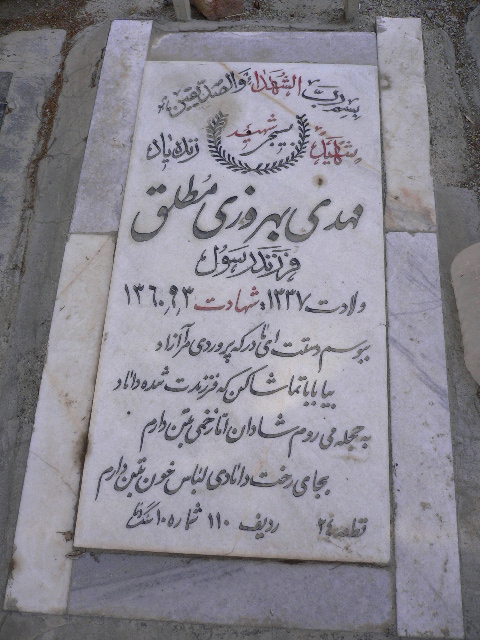 بسم رب الشهداء والصدیقین
شهید بسیجی شهید زنده یاد
مهدی بهروزی مطلق
فرزند رسول
ولادت ۱۳۳۷ شهادت ۱۳۶۰٫۹٫۳
ببوسم دستت ای مادر که پروردی مرا آزاد
بیا بابا تماشا کن که فرزندت شده داماد
به حجله می روم شادان اما زخمی بتن دارم
بجای رخت دامادی لباس خون بتن دارم
قطعه ۲۴ ردیف ۱۱۰ شماره ۱۰